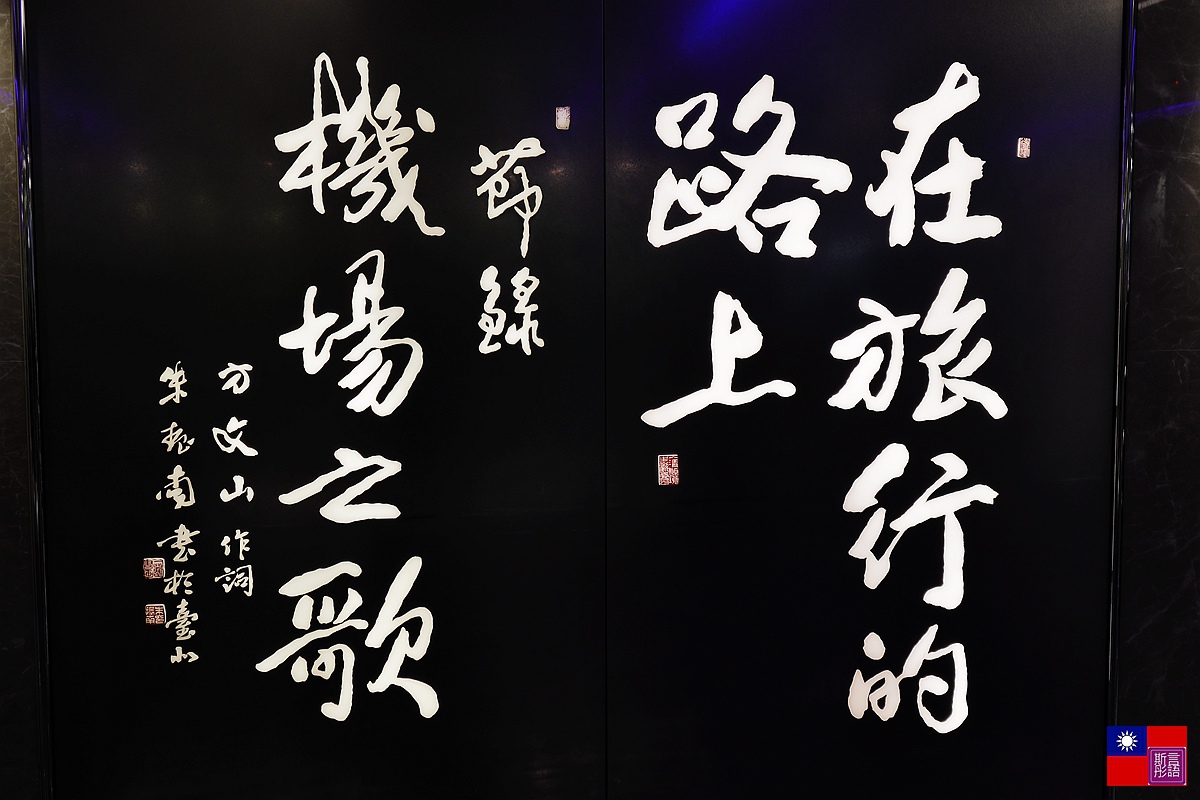 在旅行的
路上
節錄
機場之歌
方文山作詞
朱振南書於臺北
言語
斯彤